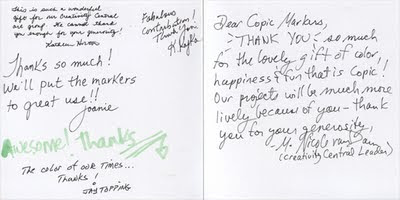 This is such a wonderful
gift for our Creativity Central
art group. We cannot thank
you enough for your generosity!
Kathleen
Fabulous
contribution!
Thank you
K
Thanks so much!
We'll put the markers
to great use!!
Joanie
Awesome! Thanks
The color of our Times...
Thanks!
JAY TOPPING
Dear Copic Markers,
THANK YOU so much
for the lovely gift of color,
happiness & fun that is Copic!
Our projects will be much more
lively because of you - thank
you for your generosity,
M. Nicole van Dam
(Creativity Central Leader)